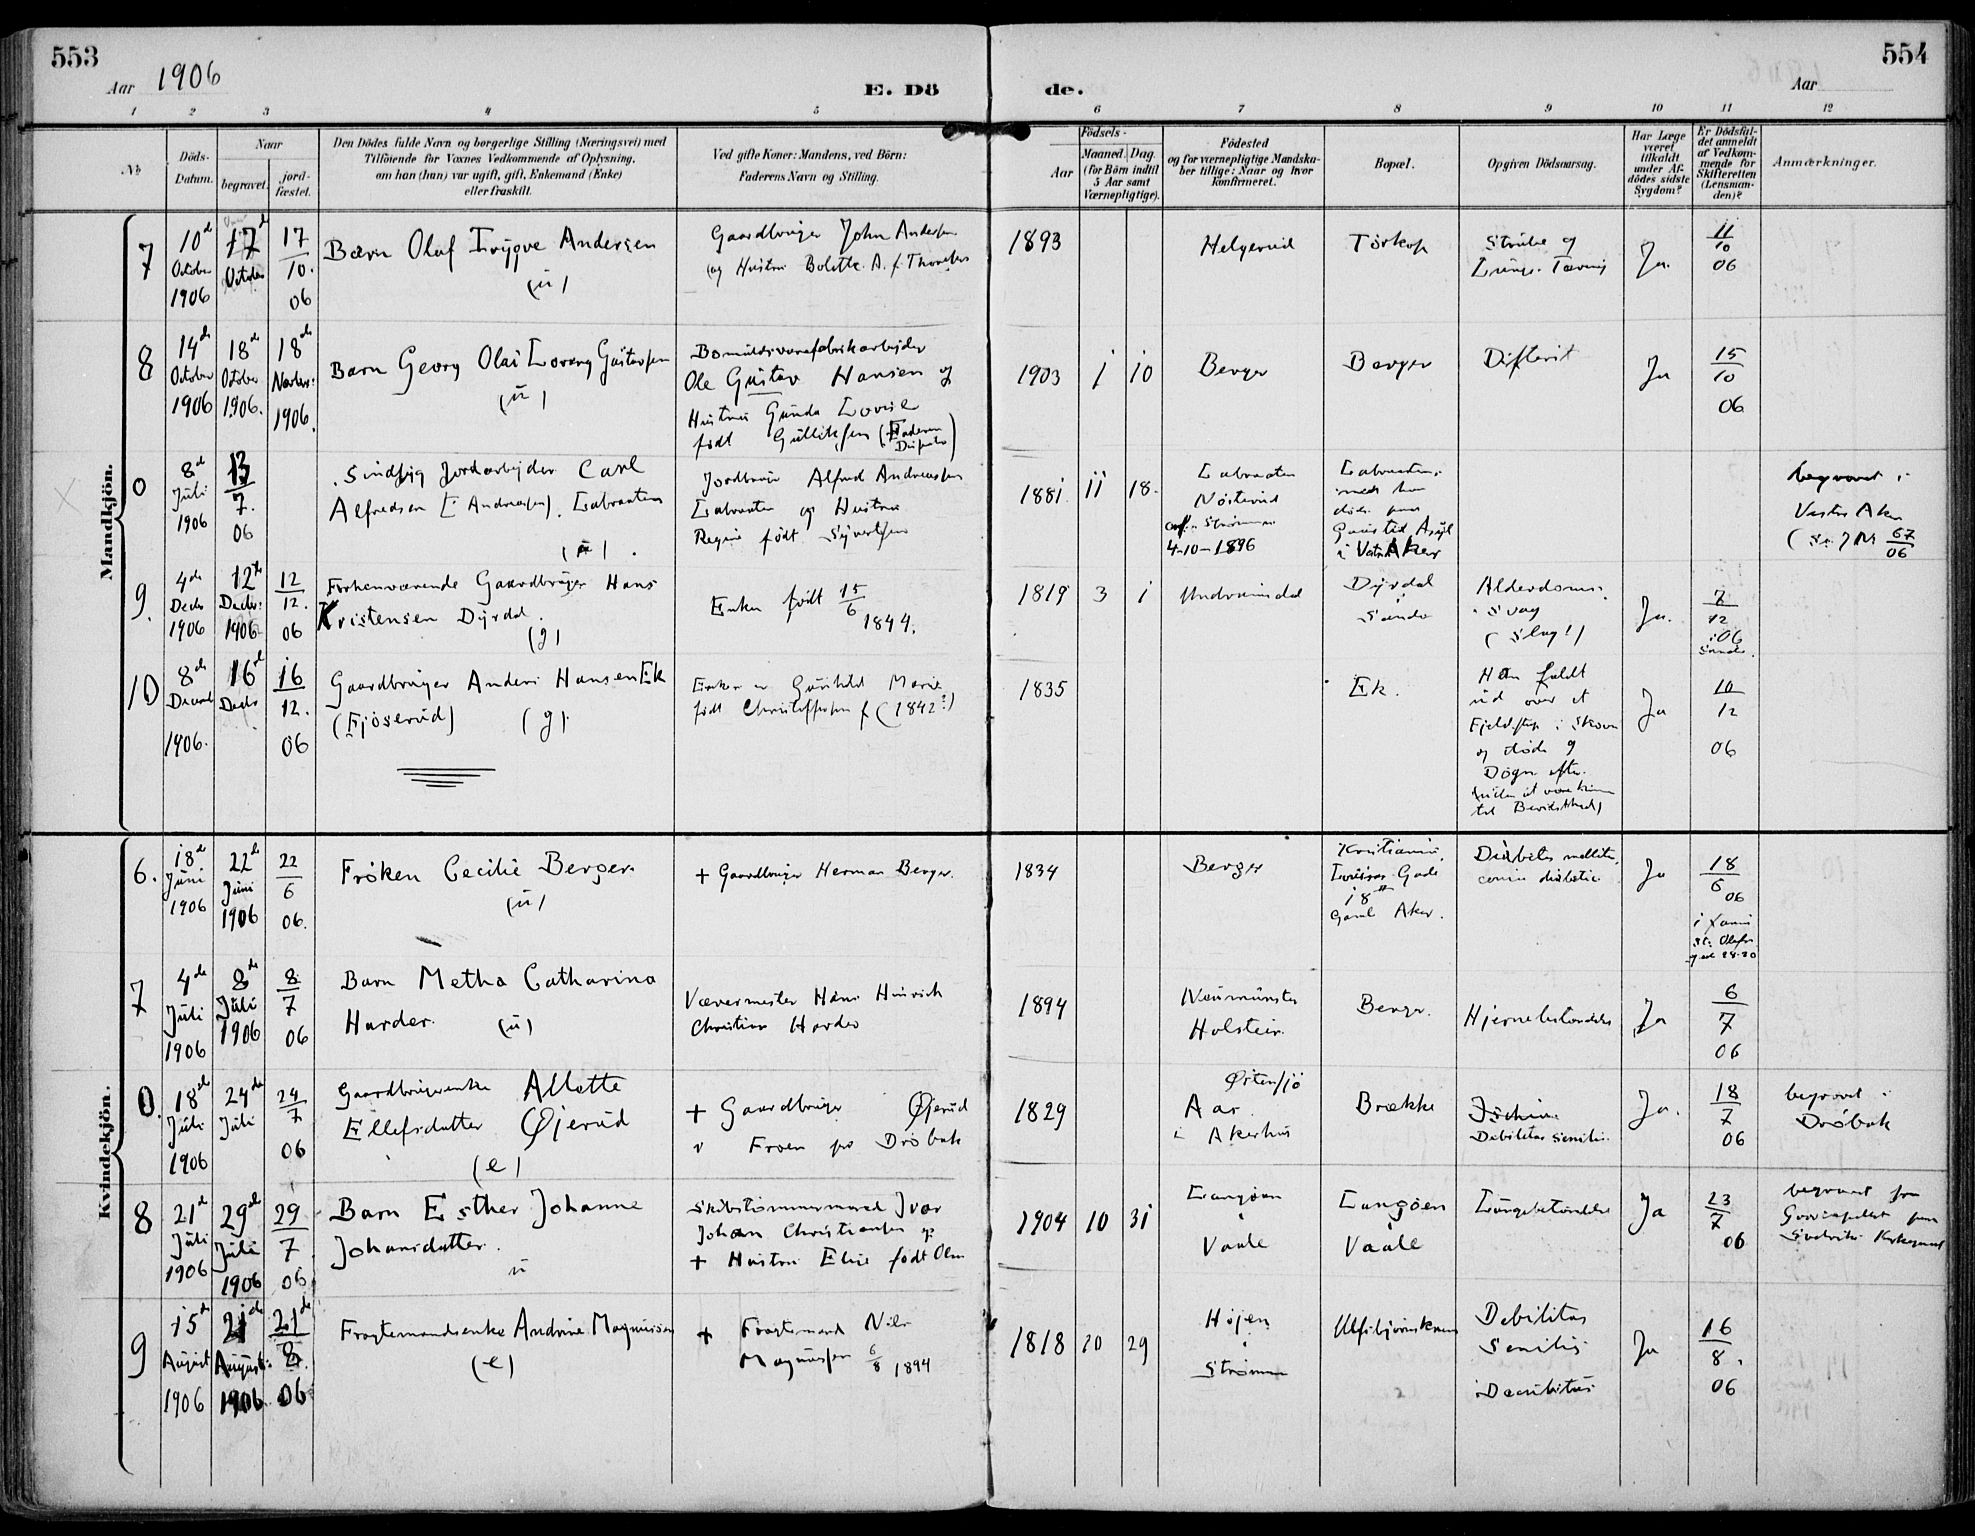 553
Aar 1906
E. Dö
de.
554
Aar
1 2 3 4 5 6 7 8 9 10 11 12
№
Döds-Datum.
Naar
begravet.
jord-fæstet.
Den Dödes fulde Navn og borgerlige Stilling (Næringsvei) med
Tilföiende for Voxnes Vedkommende af Oplysning,
om han (hun) var ugift, gift, Enkemand (Enke)
eller fraskilt.
Ved gifte Koner: Mandens, ved Börn:
Faderens Navn og Stilling.
Födsels-
Aar
Maaned. Dag.
(for Börn indtil
5 Aar samt
Værnepligtige).
Födested
og for værnepligtige Mandska-
ber tillige: Naar og hvor
konfirmeret.
Bopæl.
Opgiven Dödsaarsag.
Har Læge
været
tilkaldt
under Af-
dödes sidste
Sygdom?
Er Dödsfal-
det anmeldt
af Vedkom-
mende for
Skifteretten
(Lensman-
den)?
Anmærkninger.
Mandkjön.
7
10de October 1906
17de October
17/10. 06
Barn Olaf Trygve Andersen
(u)
Gaardbruger John Andersen
og Hustru Bolette A. f. Thorefsen
1893
Helgerud
Torskop
Strube og
Lunge-Tæring
Ja.
11/10 06
8
14de October 1906
18de October 1906.
18de Novbr: 1906.
Barn Georg Olai Lorang Gustavsen
(u)
Bomuldsvarefabrikarbejder
Ole Gustav Hansen og
Hustru Gunda Lovise
født Gulliksen (Faderen
Dissenter)
1903 1 10
Berger
Berger
Difterit
Ja
15/10 06
0
8de Juli 1906
13/7. 06
Sindssyg Jordarbejder Carl
Alfredsen (Andreasen). Labraaten
(u).
Jordbruger Alfred Andreassen
Labraaten og Hustru
Regine født Syvertsen
1881 11 18.
Labraaten
Nøsterud
conf. Strømmen
4-10-1896
Labraaten,
men han
døde paa
Gaustad Asyl
i Vestre Aker
begravet i
Vestre Aker
(Se J№ 67/06
9.
4de Decbr 1906
12te Decbr: 1906
12/12. 06
Forhenværende Gaardbruger Hans
Kristensen Dyrdal.
(g)
Enke født 15/6 1844.
1819 3 1
Undrumsdal
Dyrdal
i
Sande
Alderdoms-
svag
(Slag!)
Ja.
7/12 06
Sande.
10
8de Decemb 1906.
16de Decbr
16/12. 06
Gaardbruger Anders Hansen Ek
(Fjøserud) (g).
Enken er Gunhild Marie
født Christoffersen f (1842?)
1835
Ek.
Han faldt
ud over et
i Skoven
og døde 9
Døgn efter
uden at være kommen
til Bevidsthed)
Ja
10/12 06
Kvindekjön.
6.
18de Juni 1906
22de Juni 1906
22/6 06.
Frøken Cecilie Berger.
(u)
+ Gaardbruger Herman Berger.
1834
Berger
Kristiania,
Gade
18II
Gaml. Aker.
Diabetes mellitus,
coma diabetic.
Ja
18/6 06
i Xania
St. Olafs
gade 28-30
7
4de Juli 1906
8de Juli 1906
8/7 06
Barn Metha Catharina
Harder. (u)
Vævermester Hans Hinrich
Christian Harder
1894
Neumünster
Holstein.
Berger.
Hjernebetændelse
Ja
6/7 06
0.
18de Juli 1906
24de Juli
24/7 06
Gaardbrugerenke Allette
Ellefsdatter Øjerud
(e)
+ Gaardbruger Øjerud
v Froen pr Drøbak
1829
Østensjø
i Aas.
i Akershus
Brække
Ischias
Debilitas senilis.
Ja.
18/7 06
begravet i
Drøbak
8
21de Juli 1906
29de Juli 1906
29/7 06
Barn Esther Johanne
Johansdatter.
u
Skibstømmermand Ivar
Johan Christiansen og
+ Hustru Elise født Olsen
1904 10 31
Langøen
i
Vaale
Langøen
i
Vaale
Lungebetændelse
Ja
23/7 06
begravet fra
paa
Kirkegaard
9
15de August 1906
21de August 1906
21de/8. 06
Fragtemandsenke Andrine Magnussen
(e)
+ Fragtemand Nils
Magnussen 6/8 1894
1818 10 29
Højen
i
Strømm
Ulfsbjørnskroken
Debilitas
Senilis
Decubitus
Ja
16/8. 06